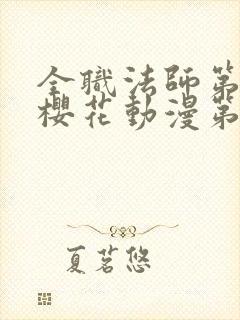 全職法師第
櫻花動漫第
夏茗悠